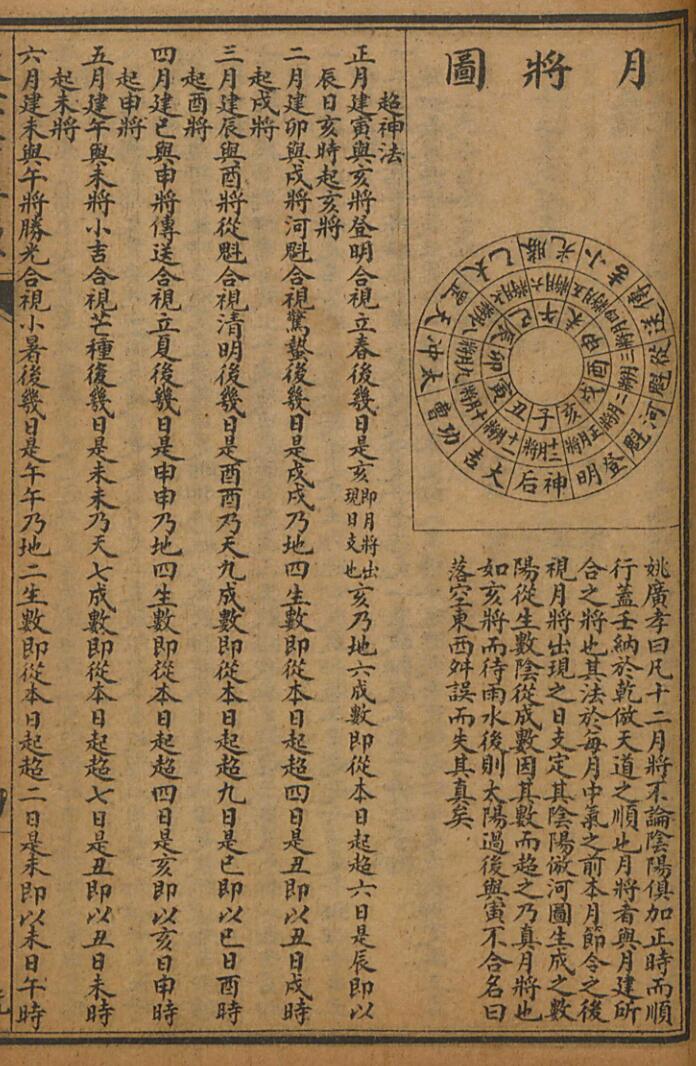 月將圖
勝光
小吉
傳送
從魁
河魁
登明
神后
大吉
功曹
太冲
天罡
太乙
六月將
五月將
四月將
三月將
二月將
正月將
十二月將
十一月將
十月將
九月將
八月將
七月將
午
未
申
酉
戌
亥
子
丑
寅
卯
辰
巳
姚廣孝曰凡十二月將不論陰陽俱加正時而順
行蓋壬納於乾倣天道之順也月將者與月建所
合之將也其法於每月中氣之前本月節令之後
視月將出現之日支定其陰陽倣河圖生成之數
陽從生數陰從成數因其數而超之乃真月將也
如亥將而待雨水後則太陽過後與寅不合名曰
落空東西舛誤而失其真矣
超神法
正月建寅與亥將登明合視立春後幾日是亥即月將出現日支也亥乃地六成數即從本日起超六日是辰即以
辰日亥時起亥將
二月建卯與戌將河魁合視驚蟄後幾日是戌戌乃地四生數即從本日起超四日是丑即以丑日戌時
起戌將
三月建辰與酉將從魁合視清明後幾日是酉酉乃天九成數即從本日起超九日是巳即以巳日酉時
起酉將
四月建巳與申將傳送合視立夏後幾日是申申乃地四生數即從本日起超四日是亥即以亥日申時
起申將
五月建午與未將小吉合視芒種後幾日是未未乃天七成數即從本日起超七日是丑即以丑日未時
起未將
六月建未與午將勝光合視小暑後幾日是午午乃地二生數即從本日起超二日是未即以未日午時